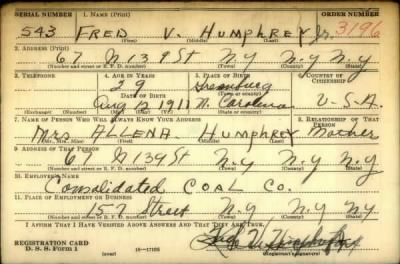 SERIAL NUMBER 1. NAME (Print) ORDER NUMBER
543 FRED V. HUMPHREY Jr. 3196
(First) (Middle) (Last)
2. ADDRESS (Print)
67 W 139 St N.Y N.Y N.Y
(Number and street or R. F. D. number) (Town) (County) (State)
3. TELEPHONE 4. AGE IN YEARS 5. PLACE OF BIRTH 6. COUNTRY OF CITIZENSHIP
29 Greensburg
DATE OF BIRTH (Town or county)
Aug 12 1911 N. Carolina U-S-A
(Exchange) (Number) (Mo.) (Day) (Yr.) (State or country)
7. NAME OF PERSON WHO WILL ALWAYS KNOW YOUR ADDRESS 8. RELATIONSHIP OF THAT PERSON
Mrs ALLENA. HUMPHREY Mother
(Mr., Mrs., Miss) (First) (Middle) (Last)
9. ADDRESS OF THAT PERSON
67 W 139 St N-y N.y N.y
(Number and street or R. F. D. number) (Town) (County) (State)
10. EMPLOYER'S NAME
Consolidated COAL Co.
11. PLACE OF EMPLOYMENT OR BUSINESS
157 Street N.Y N.Y NY
(Number and street or R. F. D. number) (Town) (County) (State)
I AFFIRM THAT I HAVE VERIFIED ABOVE ANSWERS AND THAT THEY ARE TRUE.
REGISTRATION CARD
D. S. S. Form 1 (over) 16—17105 (Registrant's signature)